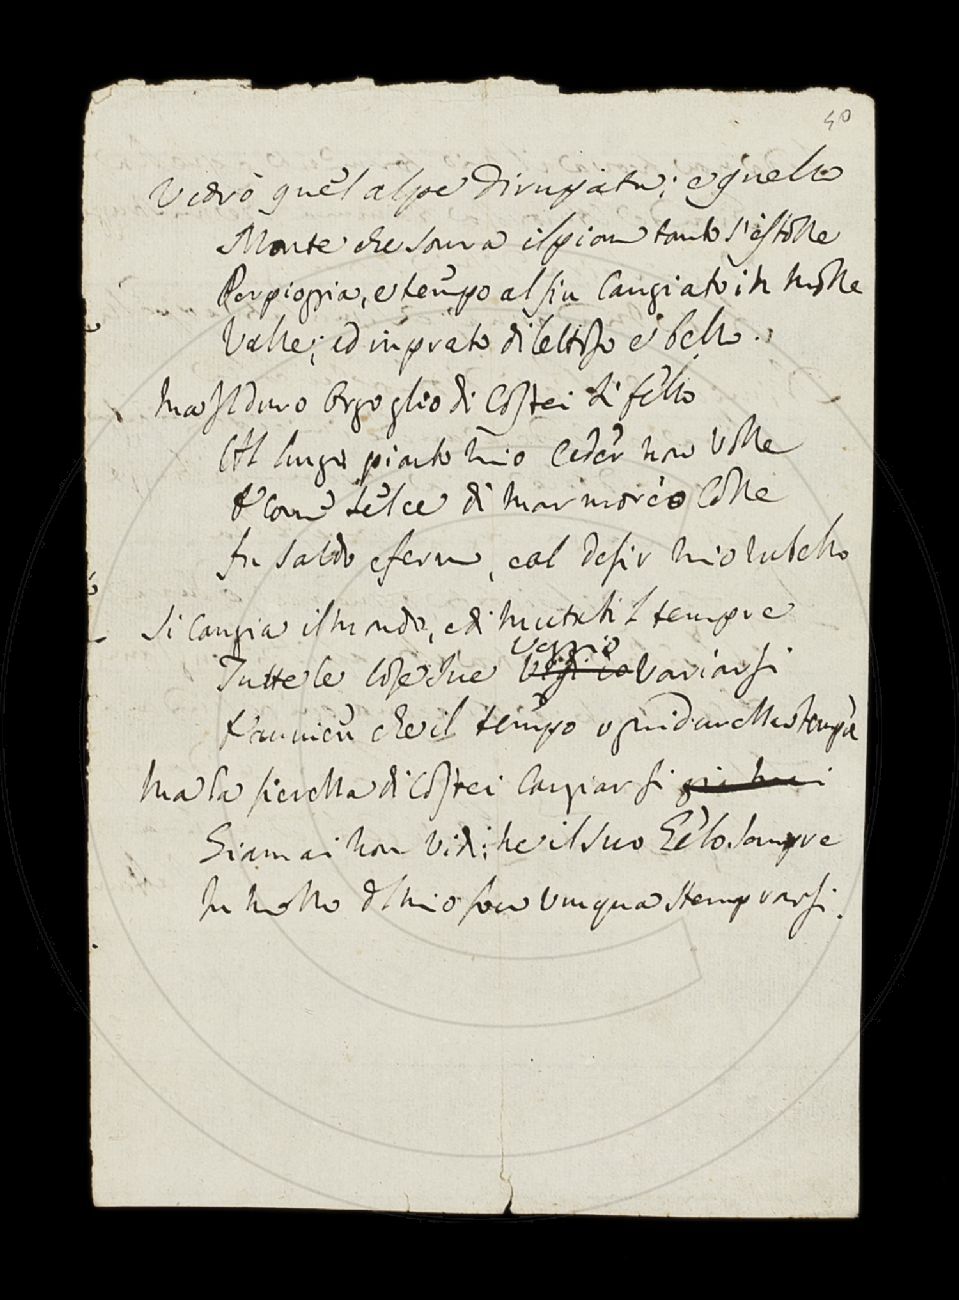 40
Vedrò quel alpe dirupata; e quello
Monte che sovra il pian tanto s'estolle
Per pioggia, e tempo al fin Cangiato in molle
Valle; ed in prato dilettoso e bello.
Ma il duro Orgoglio di Costei di fello
Al lungo pianto mio Ceder non Volle
E come selce di marmoreo Colle
Fu Saldo e fermo, e al desir mio rubello
Si Cangia il mondo, e di mutati tempre
Tutte le Cose sue veggio Variarsi
E avvien che il tempo ogni durezza tempre
Ma la fierezza di Costei Cangiarsi
Giammai non Vidi; ne il suo Gelo sempre
In mezzo al mio foco unqua stemprarsi.